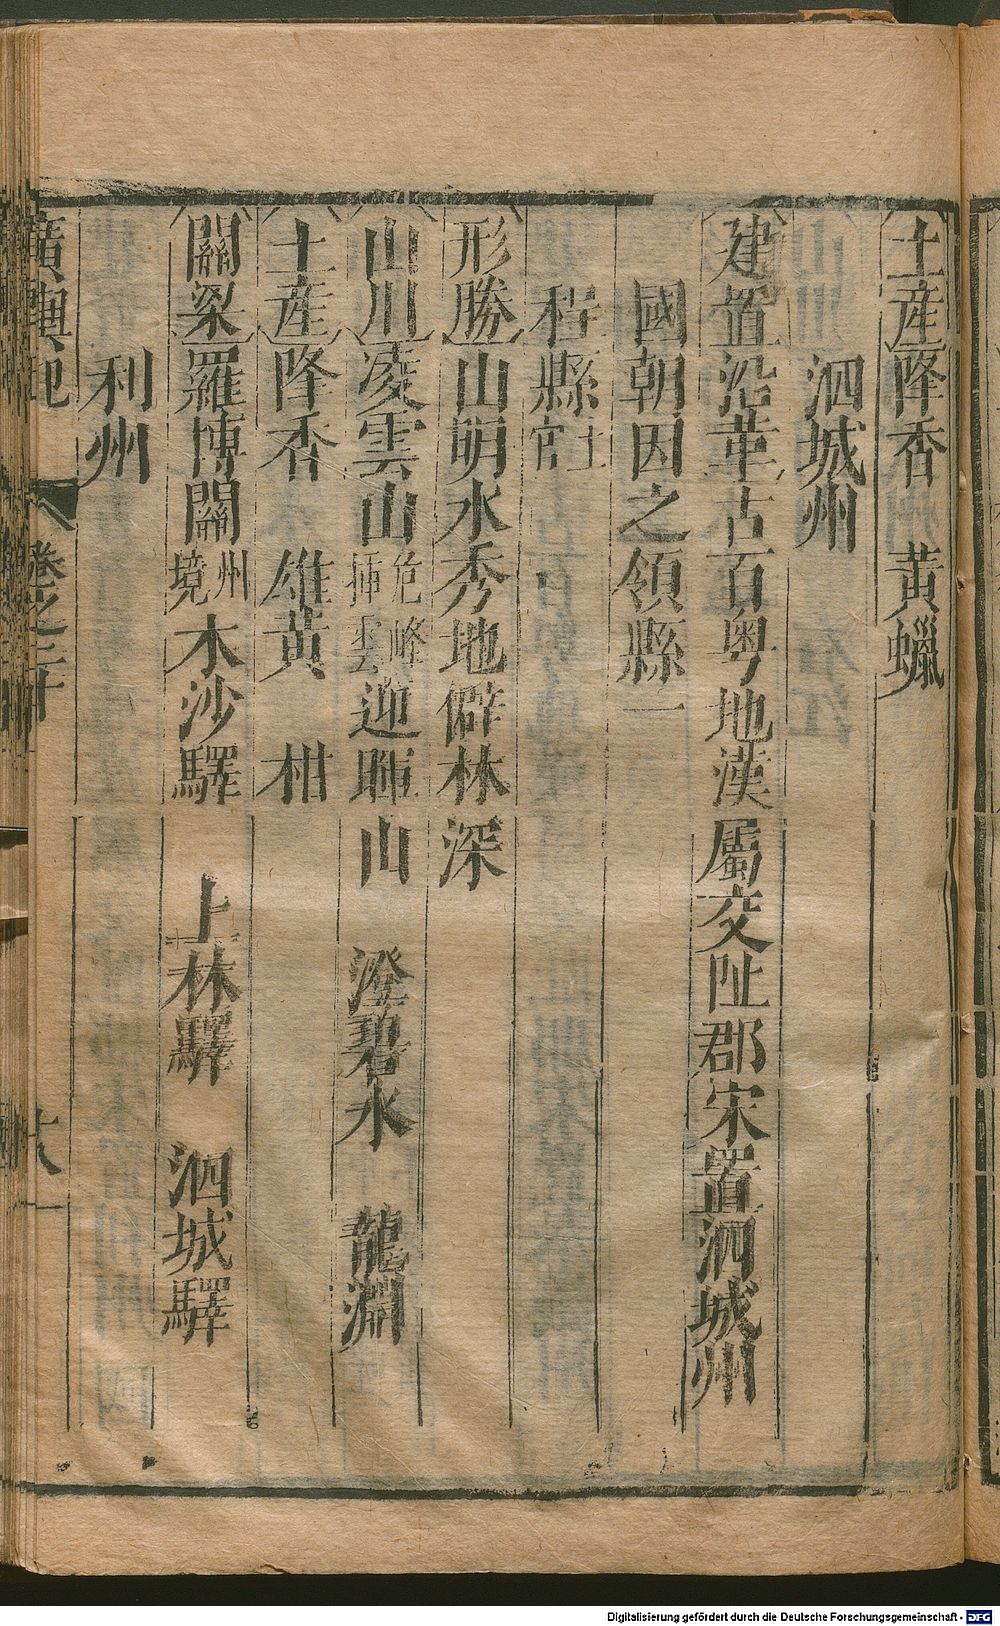 土産降香　黃蠟
泗城州
建置沿革古百粤地漢屬交阯郡宋置泗城州
國朝因之領縣一
程縣土官
形勝山明水秀地僻林深
山川凌雲山危峰挿雲迎暉山　澄碧水　龍淵
土産降香　雄黃　柑
關梁羅博關州境木沙驛　上林驛　泗城驛
利州
廣輿記　卷之二十　十八
Digitalisierung gefördert durch die Deutsche Forschungsgemeinschaft - DFG